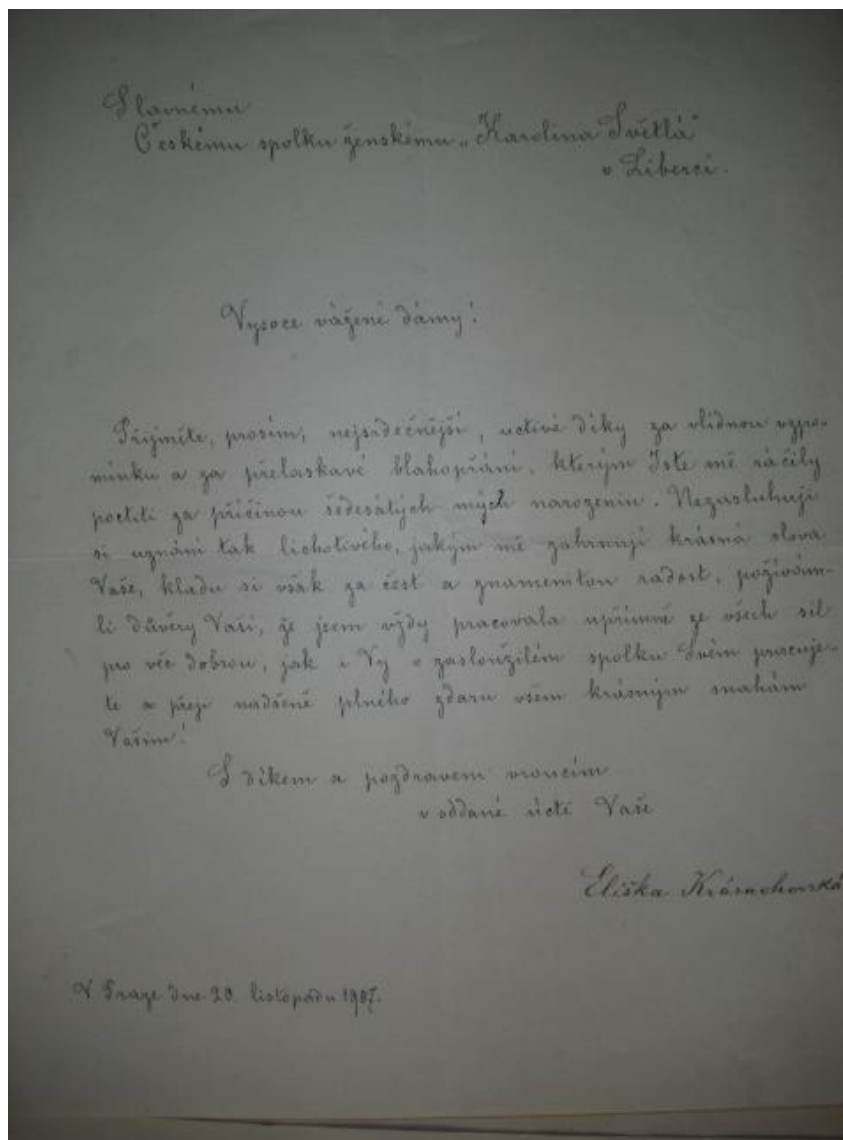 Slavnému
Českému spolku ženskému „Karolina Světlá"
v Liberci.
Vysoce vážené dámy!
Přijměte, prosím, nejsrdečnější, uctivé díky za vlídnou vzpo-
mínku a za přelaskavé blahopřání, kterým Jste mě ráčily
poctíti za příčinou šedesátých mých narozenin. Nezasluhuji
si uznání tak lichotivého, jakým mě zahrnují krásná slova
Vaše, kladu si však za čest a znamenitou radost, požívám-
li důvěry Vaší, že jsem vždy pracovala upřímně ze všech sil
pro věc dobrou, jak i Vy v zasloužilém spolku Svém pracuje-
te a přeji nadšeně plného zdaru všem krásným snahám
Vašim!
S díkem a pozdravem vroucím
v oddané úctě Vaše
Eliška Krásnohorská
V Praze dne 20. listopadu 1907.